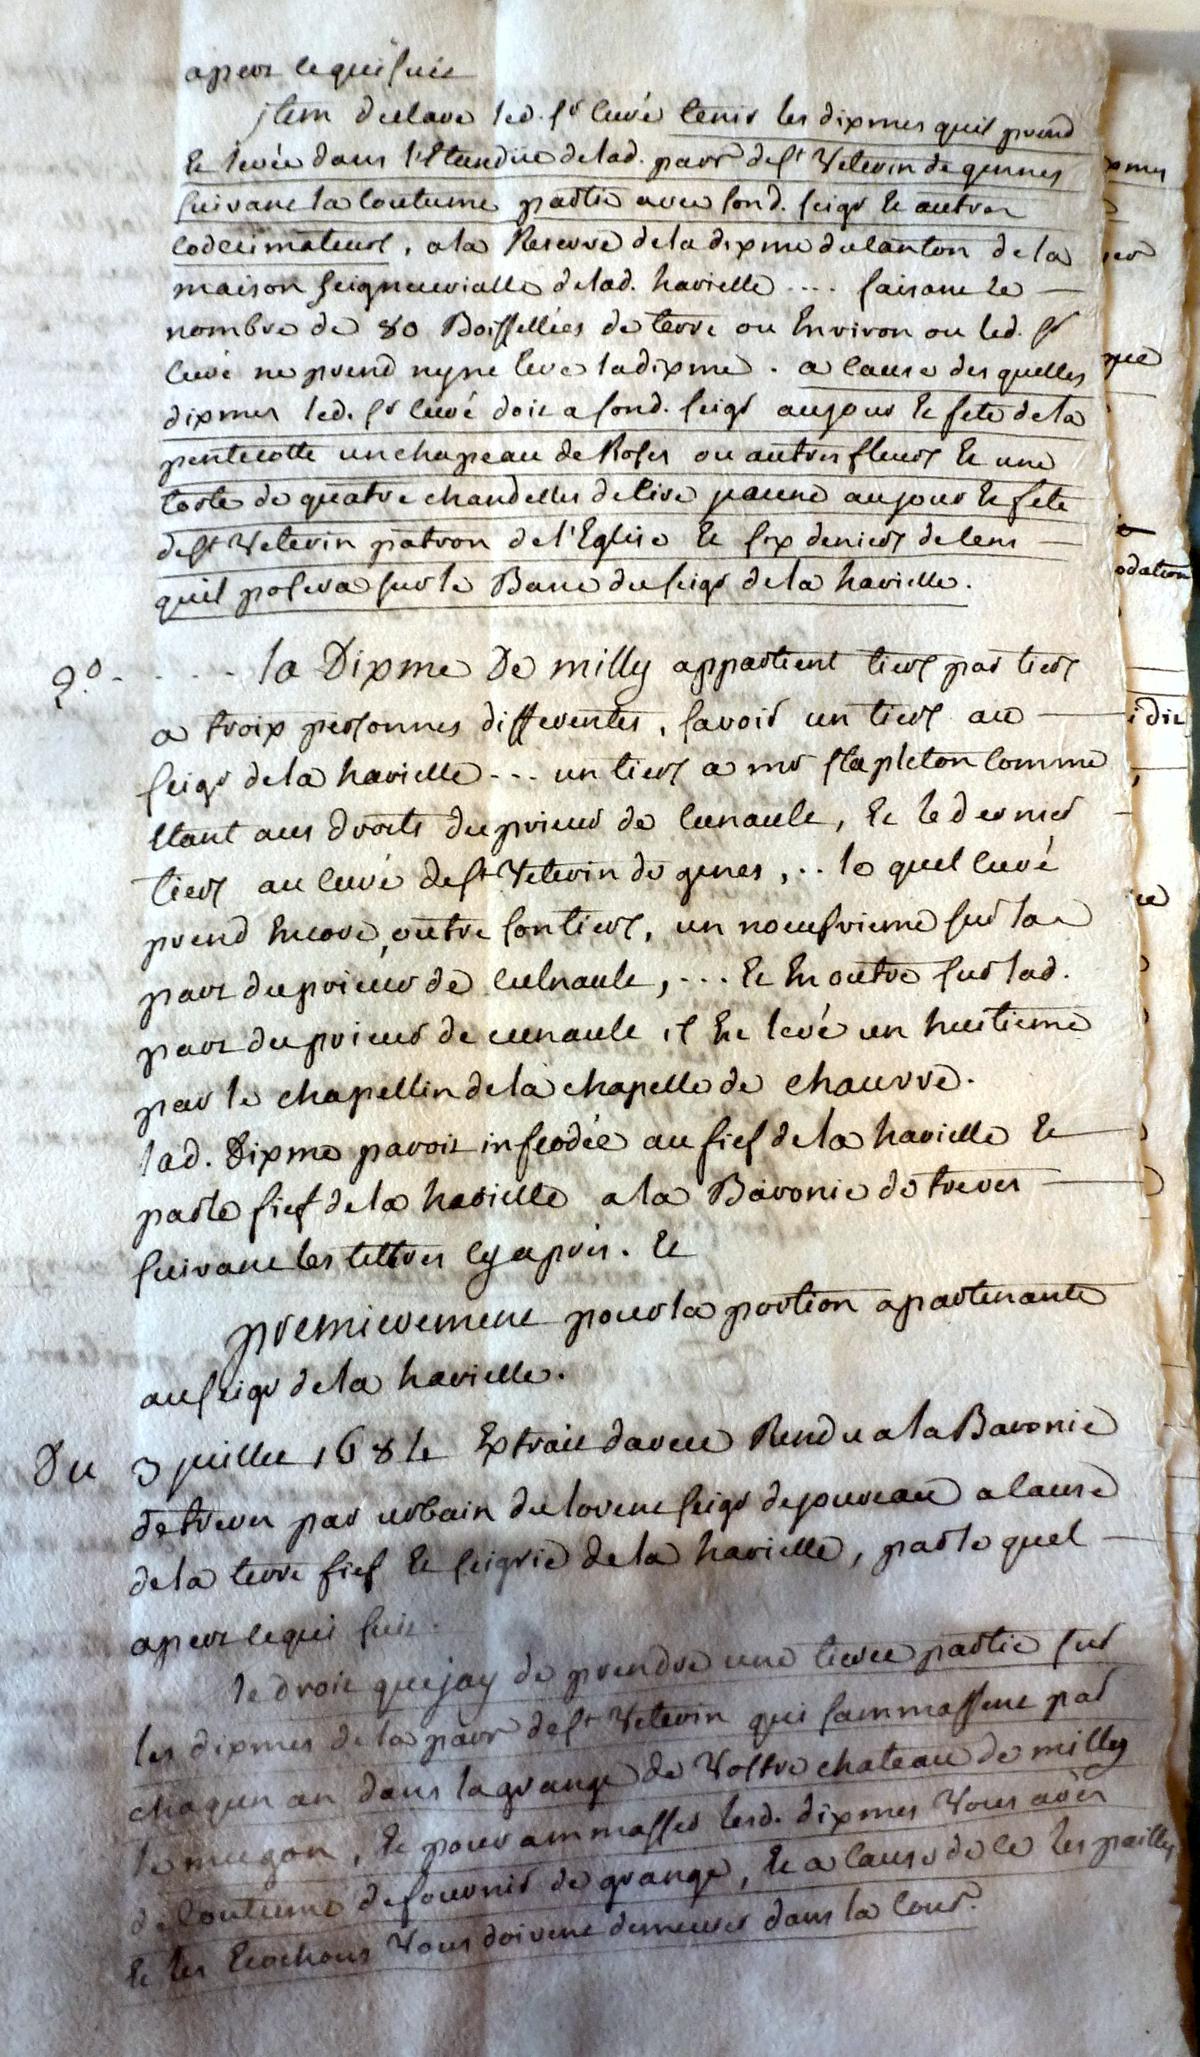 apert ce qui suit
Item declare led. sr curé tenir les dixmes quil prend
et levée dans l'Etandüe de lad. parr de st Veterin de gennes
suivant la coutume partie avec sond. seigr et autres
codecimateurs, a la Reserve de la dixme du canton de la
maison seigneurialle de lad. harielle .... faisant le
nombre de 80 Boissellées de terre ou Environ ou led. sr
curé ne prend ny ne leve la dixme. a cause des quelles
dixmes led. sr curé doit a sond. seigr au jour et fete de la
pentecotte un chapeau de Roses ou autres fleurs et une
torte de quatre chandelles de cire jaune au jour et fete
de st Veterin patron de l'Eglise et six deniers de cens
quil posera sur le Banc du seigr de la harielle.
2.o - . . . . la Dixme De milly appartient tiers par tiers
a troix personnes differentes, savoir un tiers au
seigr de la harielle - - - un tiers a mr stapleton comme
Etant aus droits du prieur de cunault, Et le dernier
tiers au curé de st Veterin de genes, .. le quel curé
prend Encore, outre son tiers, un noeufvieme sur la
part du prieur de culnault, - ... Et En outre sur lad.
part du prieur de cunault il Est levé un huitieme
par le chapellin de la chapelle de chauvre.
lad. Dixme paroit infeodée au fief de la harielle Et
par le fief de la harielle a la Baronie de treves
suivant les tittres cy aprés. Et
premierement pour la portion apartenante
au seigr de la harielle.
Du 3 juillet 1684 Extrait daveu Rendu a la Baronie
de treves par urbain du lorent seigr de joureau a cause
de la terre fief Et seigrie de la harielle, par le quel
apert ce qui suit.
le droit que jay de prendre une tierce partie sur
les dixmes de la parr de st Veterin qui sammassent par
chaqun an dans la grange de Vostre chateau de milly
le meugon, Et pour ammasser lesd. dixmes Vous avés
de coutume de fournir de grange, Et a cause de ce les pailles
Et les Ecochons Vous doivent demeurer dans la cour.